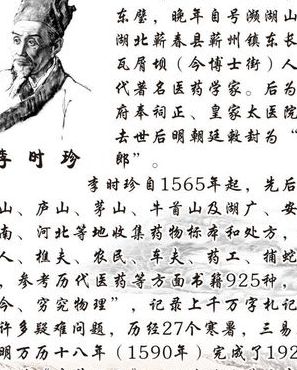 东璧，晚年自号濒湖山
湖北蕲春县蕲州镇东长
瓦屑坝（今博士街）人
代著名医药学家。后为
府奉祠正、皇家太医院
去世后明朝廷敕封为“
郎”。
李时珍
李时珍自1565年起，先后
山、庐山、茅山、牛首山及湖广、安
南、河北等地收集药物标本和处方，
人、樵夫、农民、车夫、药工、捕蛇
，参考历代医药等方面书籍925种，
今、穷究物理”，记录上千万字札记
许多疑难问题，历经27个寒暑，三易
明万历十八年（1590年）完成了192